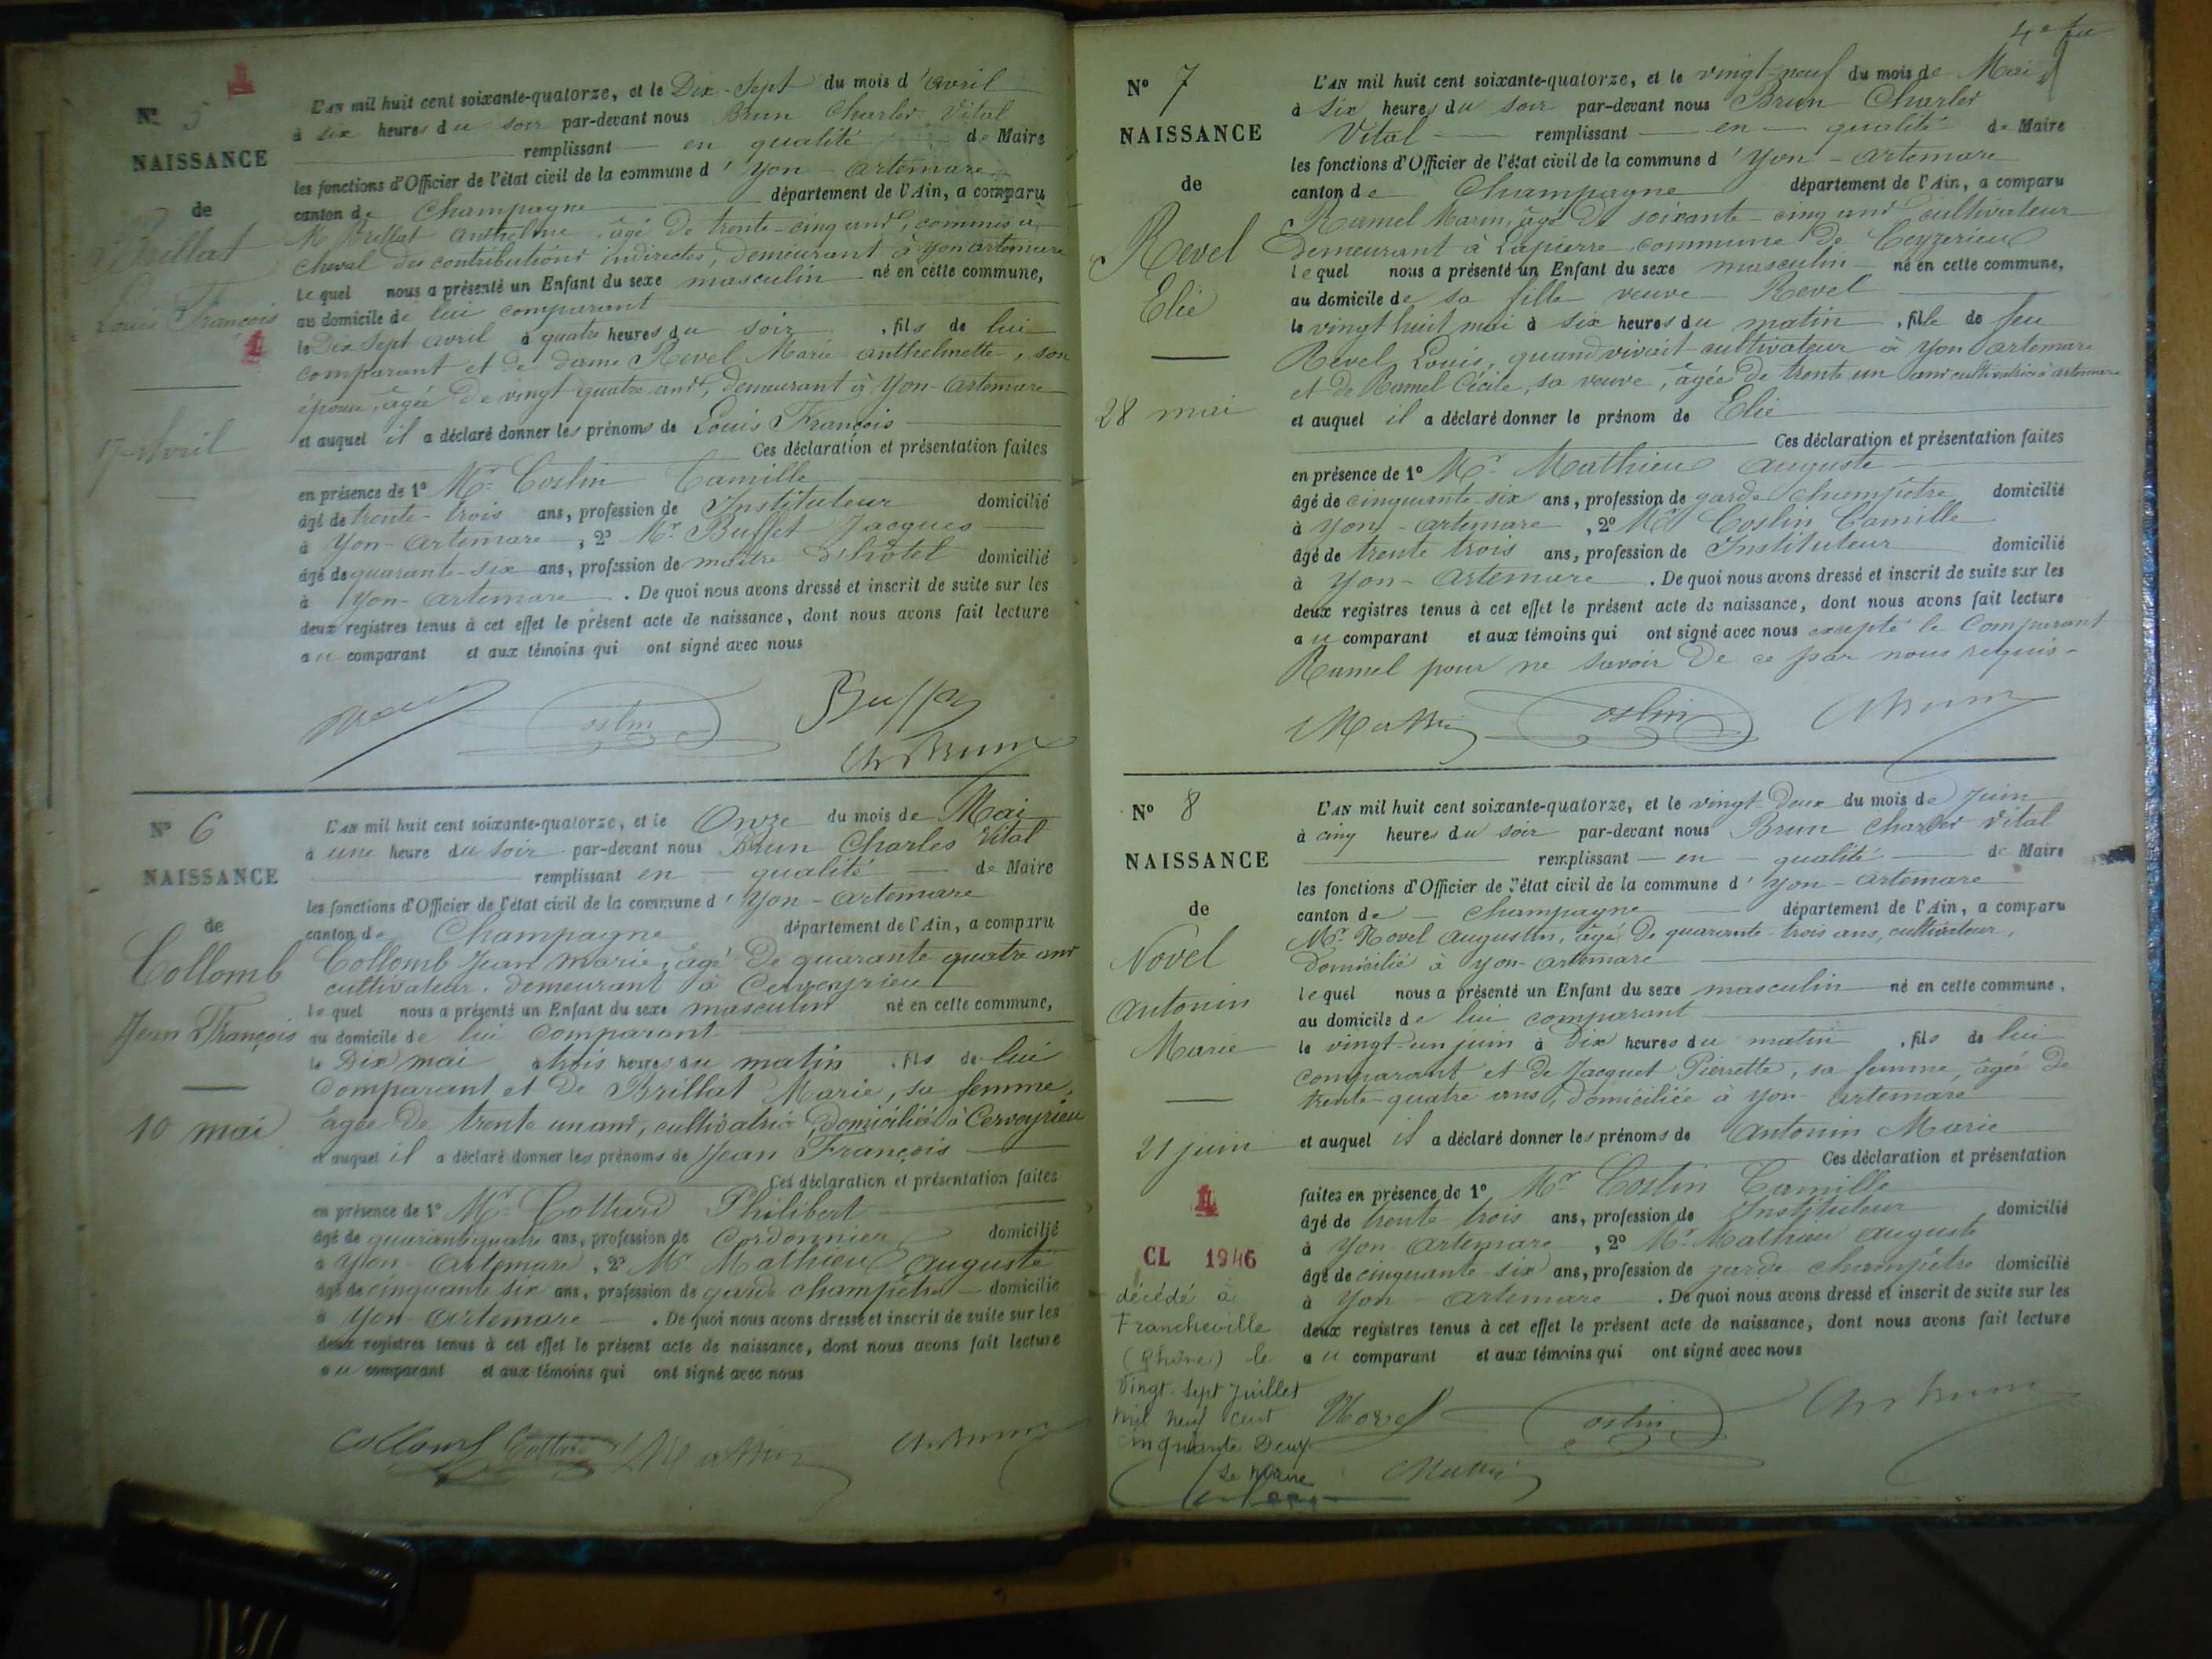 N° 5
NAISSANCE
de
Brillat
Louis François
17 Avril
L'AN mil huit cent soixante-quatorze, et le Dix-Sept du mois d'avril
à six heures du soir par-devant nous Brun Charles Vital
remplissant en qualité de Maire
les fonctions d'Officier de l'état civil de la commune d'Yon-Artemare
canton de Champagne département de l'Ain, a comparu
Mr Brillat Anthelme, âgé de trente-cinq ans, commis à
cheval des contributions indirectes, demeurant à Yon artemare
lequel nous a présenté un Enfant du sexe masculin né en cette commune,
au domicile de lui comparant
le Dix Sept avril à quatre heures du soir, fils de lui
comparant et de dame Revel Marie Anthelmette, son
épouse, âgée de vingt quatre ans, demeurant à Yon-Artemare
et auquel il a déclaré donner les prénoms de Louis François
Ces déclaration et présentation faites
en présence de 1° Mr Costin Camille
âgé de trente-trois ans, profession de Instituteur domicilié
à Yon-Artemare, 2° Mr Buffet Jacques
âgé de quarante-six ans, profession de maître d'hôtel domicilié
à Yon-Artemare. De quoi nous avons dressé et inscrit de suite sur les
deux registres tenus à cet effet le présent acte de naissance, dont nous avons fait lecture
au comparant et aux témoins qui ont signé avec nous
ostin
Ch Brun
N° 6
NAISSANCE
de
Collomb
Jean François
10 mai
L'AN mil huit cent soixante-quatorze, et le Onze du mois de Mai
à une heure du soir par-devant nous Brun Charles Vital
remplissant en qualité de Maire
les fonctions d'Officier de l'état civil de la commune d'Yon-Artemare
canton de Champagne département de l'Ain, a comparu
Collomb Jean Marie, âgé de quarante quatre ans
cultivateur, demeurant à Cerveyrieu
lequel nous a présenté un Enfant du sexe masculin né en cette commune,
au domicile de lui comparant
le Dix mai à trois heures du matin, fils de lui
Comparant, et de Brillat Marie, sa femme,
âgée de trente un ans, cultivatrice, domiciliée à Cerveyrieu
et auquel il a déclaré donner les prénoms de Jean François
Ces déclaration et présentation faites
en présence de 1° Mr Cottard Philibert
âgé de quarante quatre ans, profession de Cordonnier domicilié
à Yon-Artemare, 2° Mr Mathieu Auguste
âgé de cinquante six ans, profession de garde champêtre domicilié
à Yon-Artemare. De quoi nous avons dressé et inscrit de suite sur les
deux registres tenus à cet effet le présent acte de naissance, dont nous avons fait lecture
au comparant et aux témoins qui ont signé avec nous
Collomb
N° 7
NAISSANCE
de
Revel
Elie
28 mai
L'AN mil huit cent soixante-quatorze, et le vingt-neuf du mois de Mai
à six heures du soir par-devant nous Brun Charles
Vital remplissant en qualité de Maire
les fonctions d'Officier de l'état civil de la commune d'Yon-Artemare
canton de Champagne département de l'Ain, a comparu
Ramel Marin, âgé de soixante-cinq ans cultivateur
demeurant à Lapierre, commune de Ceyzerieu
lequel nous a présenté un Enfant du sexe masculin né en cette commune,
au domicile de sa fille veuve Revel
le vingt huit mai à six heures du matin, fils de feu
Revel Louis, quand vivait cultivateur à Yon Artemare
et de Ramel Cécile, sa veuve, âgée de trente un ans cultivatrice à artemare
et auquel il a déclaré donner le prénom de Elie
Ces déclaration et présentation faites
en présence de 1° Mr Mathieu Auguste
âgé de cinquante-six ans, profession de garde champêtre domicilié
à Yon-Artemare, 2° Mr Costin Camille
âgé de trente trois ans, profession de Instituteur domicilié
à Yon-Artemare. De quoi nous avons dressé et inscrit de suite sur les
deux registres tenus à cet effet le présent acte de naissance, dont nous avons fait lecture
au comparant et aux témoins qui ont signé avec nous excepté le Comparant
Ramel pour ne savoir de ce par nous requis
ostin
N° 8
NAISSANCE
de
Novel
Antonin
Marie
21 juin
CL 1946
décédé à
Francheville
(Rhône) le
Vingt-Sept Juillet
mil neuf cent
cinquante Deux
Le Maire
L'AN mil huit cent soixante-quatorze, et le vingt-Deux du mois de Juin
à cinq heures du soir par-devant nous Brun Charles Vital
remplissant en qualité de Maire
les fonctions d'Officier de l'état civil de la commune d'Yon-Artemare
canton de Champagne département de l'Ain, a comparu
Mr Novel Augustin, âgé de quarante-trois ans, cultivateur,
domicilié à Yon-Artemare
lequel nous a présenté un Enfant du sexe masculin né en cette commune,
au domicile de lui comparant
le vingt-un juin à Dix heures du matin, fils de lui
comparant et de Jacquet Pierrette, sa femme, âgée de
trente-quatre ans, domiciliée à Yon-Artemare
et auquel il a déclaré donner les prénoms de Antonin Marie
Ces déclaration et présentation
faites en présence de 1° Mr Costin Camille
âgé de trente trois ans, profession de Instituteur domicilié
à Yon-Artemare, 2° Mr Mathieu Auguste
âgé de cinquante six ans, profession de garde champêtre domicilié
à Yon-Artemare. De quoi nous avons dressé et inscrit de suite sur les
deux registres tenus à cet effet le présent acte de naissance, dont nous avons fait lecture
au comparant et aux témoins qui ont signé avec nous
Novel
ostin